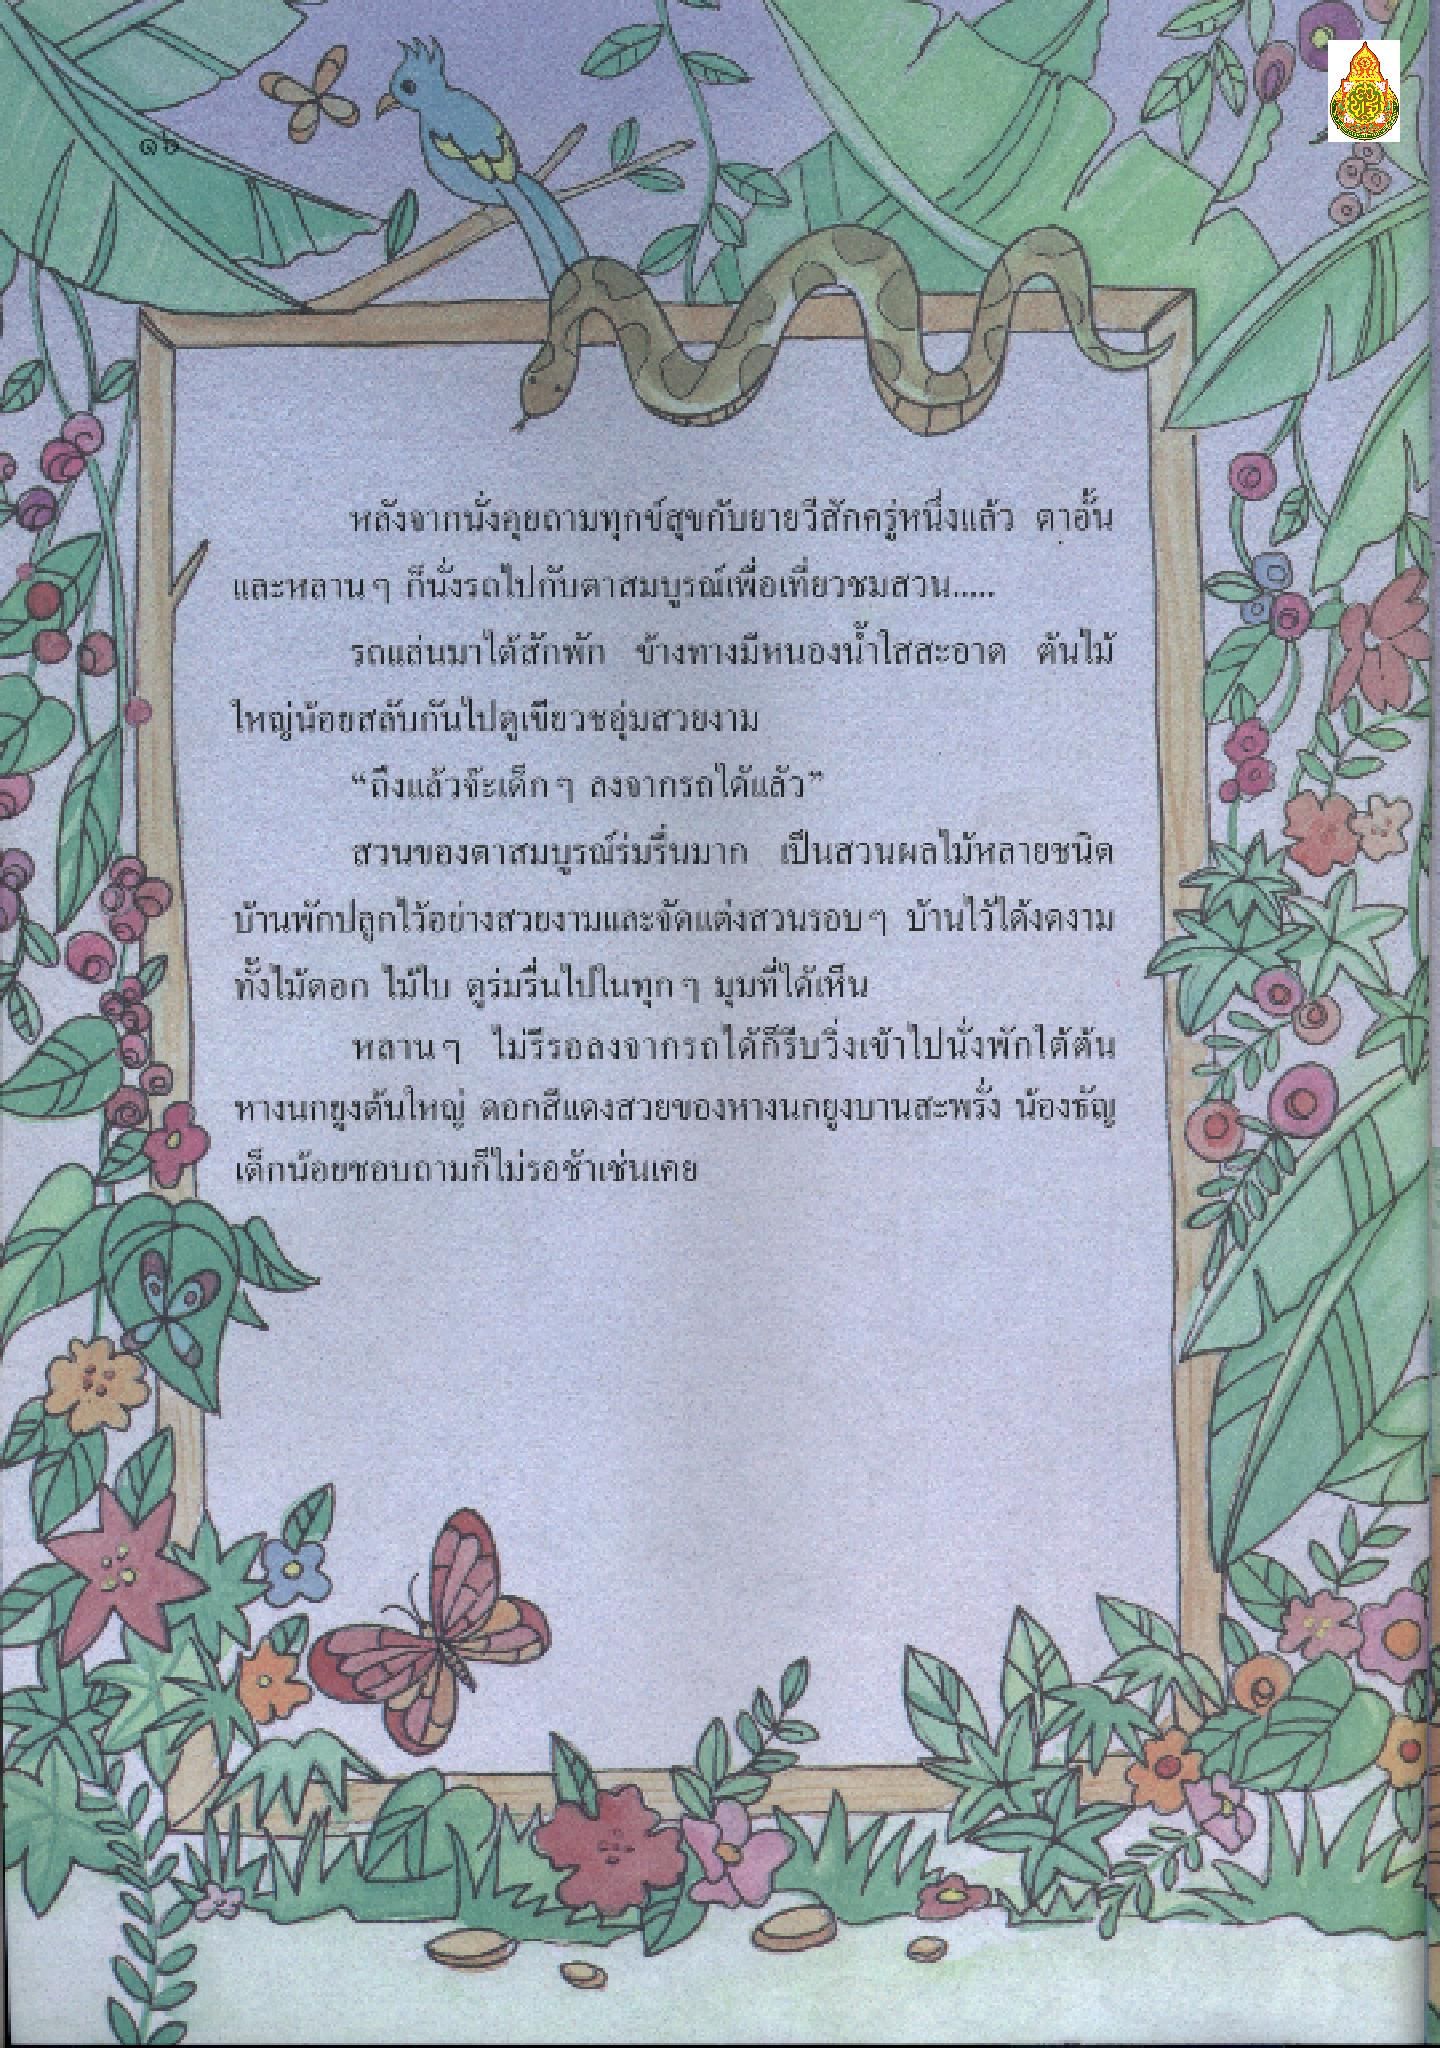 ๑๖
หลังจากนั่งคุยถามทุกข์สุขกับยายวีสักครู่หนึ่งแล้ว ตาอั้น
และหลานๆ ก็นั่งรถไปกับตาสมบูรณ์เพื่อเที่ยวชมสวน.....
รถแล่นมาได้สักพัก ข้างทางมีหนองน้ำใสสะอาด ต้นไม้
ใหญ่น้อยสลับกันไปดูเขียวชอุ่มสวยงาม
“ถึงแล้วจ้ะเด็กๆ ลงจากรถได้แล้ว”
สวนของตาสมบูรณ์ร่มรื่นมาก เป็นสวนผลไม้หลายชนิด
บ้านพักปลูกไว้อย่างสวยงามและจัดแต่งสวนรอบๆ บ้านไว้ได้งดงาม
ทั้งไม้ดอก ไม้ใบ ดูร่มรื่นไปในทุกๆ มุมที่ได้เห็น
หลานๆ ไม่รีรอลงจากรถได้ก็รีบวิ่งเข้าไปนั่งพักใต้ต้น
หางนกยูงต้นใหญ่ ดอกสีแดงสวยของหางนกยูงบานสะพรั่ง น้องธัญ
เด็กน้อยชอบถามก็ไม่รอช้าเช่นเคย